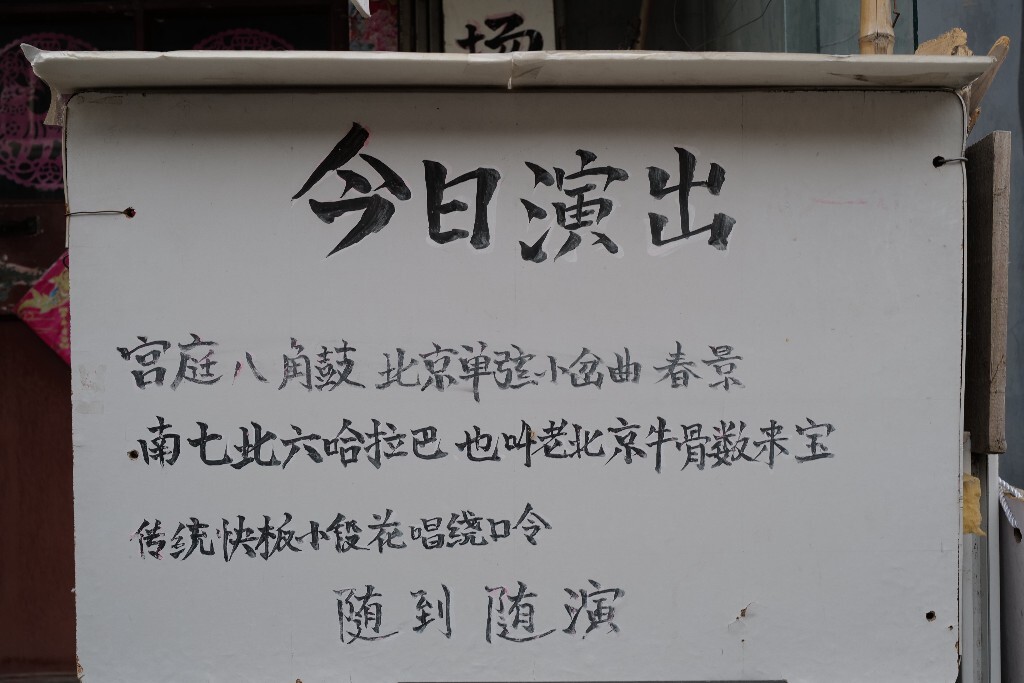 场
今日演出
宫庭八角鼓 北京单弦小岔曲 春景
南七北六哈拉巴 也叫老北京牛骨数来宝
传统快板小段花唱绕口令
随到随演